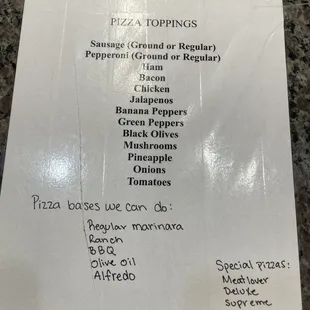 PIZZA TOPPINGS
Sausage (Ground or Regular)
Pepperoni (Ground or Regular)
Ham
Bacon
Chicken
Jalapenos
Banana Peppers
Green Peppers
Black Olives
Mushrooms
Pineapple
Onions
Tomatoes
Pizza bases we can do:
Regular marinara
Ranch
BBQ
Olive Oil
Alfredo
Special Pizzas:
Meatlover
Deluxe
Supreme